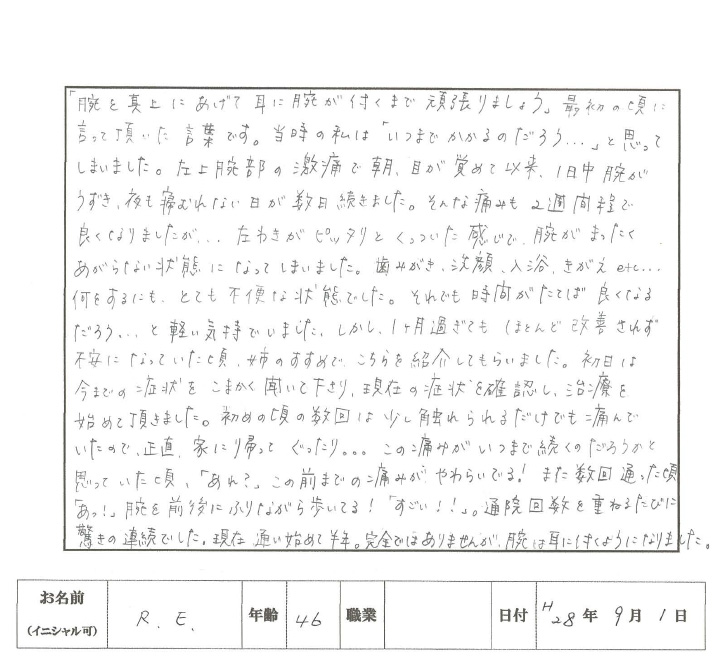 「腕を真上にあげて耳に腕が付くまで頑張りましょう」最初の頃に
言って頂いた言葉です。当時の私は「いつまでかかるのだろう...」と思って
しまいました。左上腕部の激痛で朝、目が覚めて以来、1日中腕が
うずき、夜も寝むれない日が数日続きました。そんな痛みも2週間程で
良くなりましたが... 左わきがピッタリとくっついた感じで、腕がまったく
あがらない状態になってしまいました。歯みがき、洗顔、入浴、きがえetc...
何をするにも、とても不便な状態でした。それでも時間がたてば良くなる
だろう...と軽い気持でいました、しかし、1ヶ月過ぎてもほとんど改善されず
不安になっていた頃、姉のすすめで、こちらを紹介してもらいました。初日は
今までの症状をこまかく聞いて下さり、現在の症状を確認し、治療を
始めて頂きました。初めの頃の数回は少し触れられるだけでも痛んで
いたので、正直、家に帰ってぐったり。。。この痛みがいつまで続くのだろうかと
思っていた頃、「あれ？」この前までの痛みがやわらいでる！また数回通った頃
「あっ！」腕を前後にふりながら歩いてる！「すごい！！」。通院回数を重ねるたびに
驚きの連続でした。現在、通い始めて半年。完全ではありませんが、腕は耳に付くようになりました。
お名前 (イニシャル可) R. E. 年齢 46 職業 日付 H28年 9月 1日